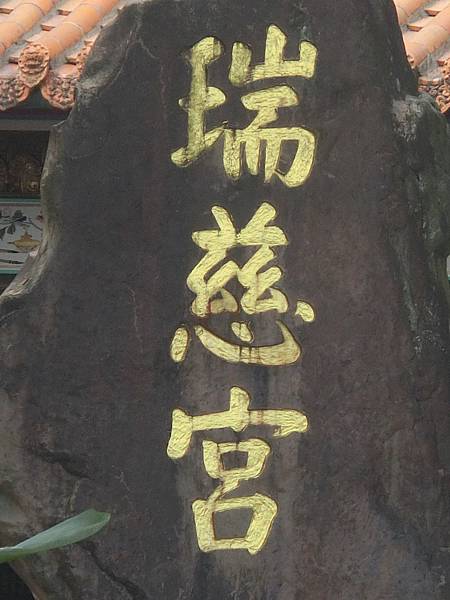 瑞慈宮